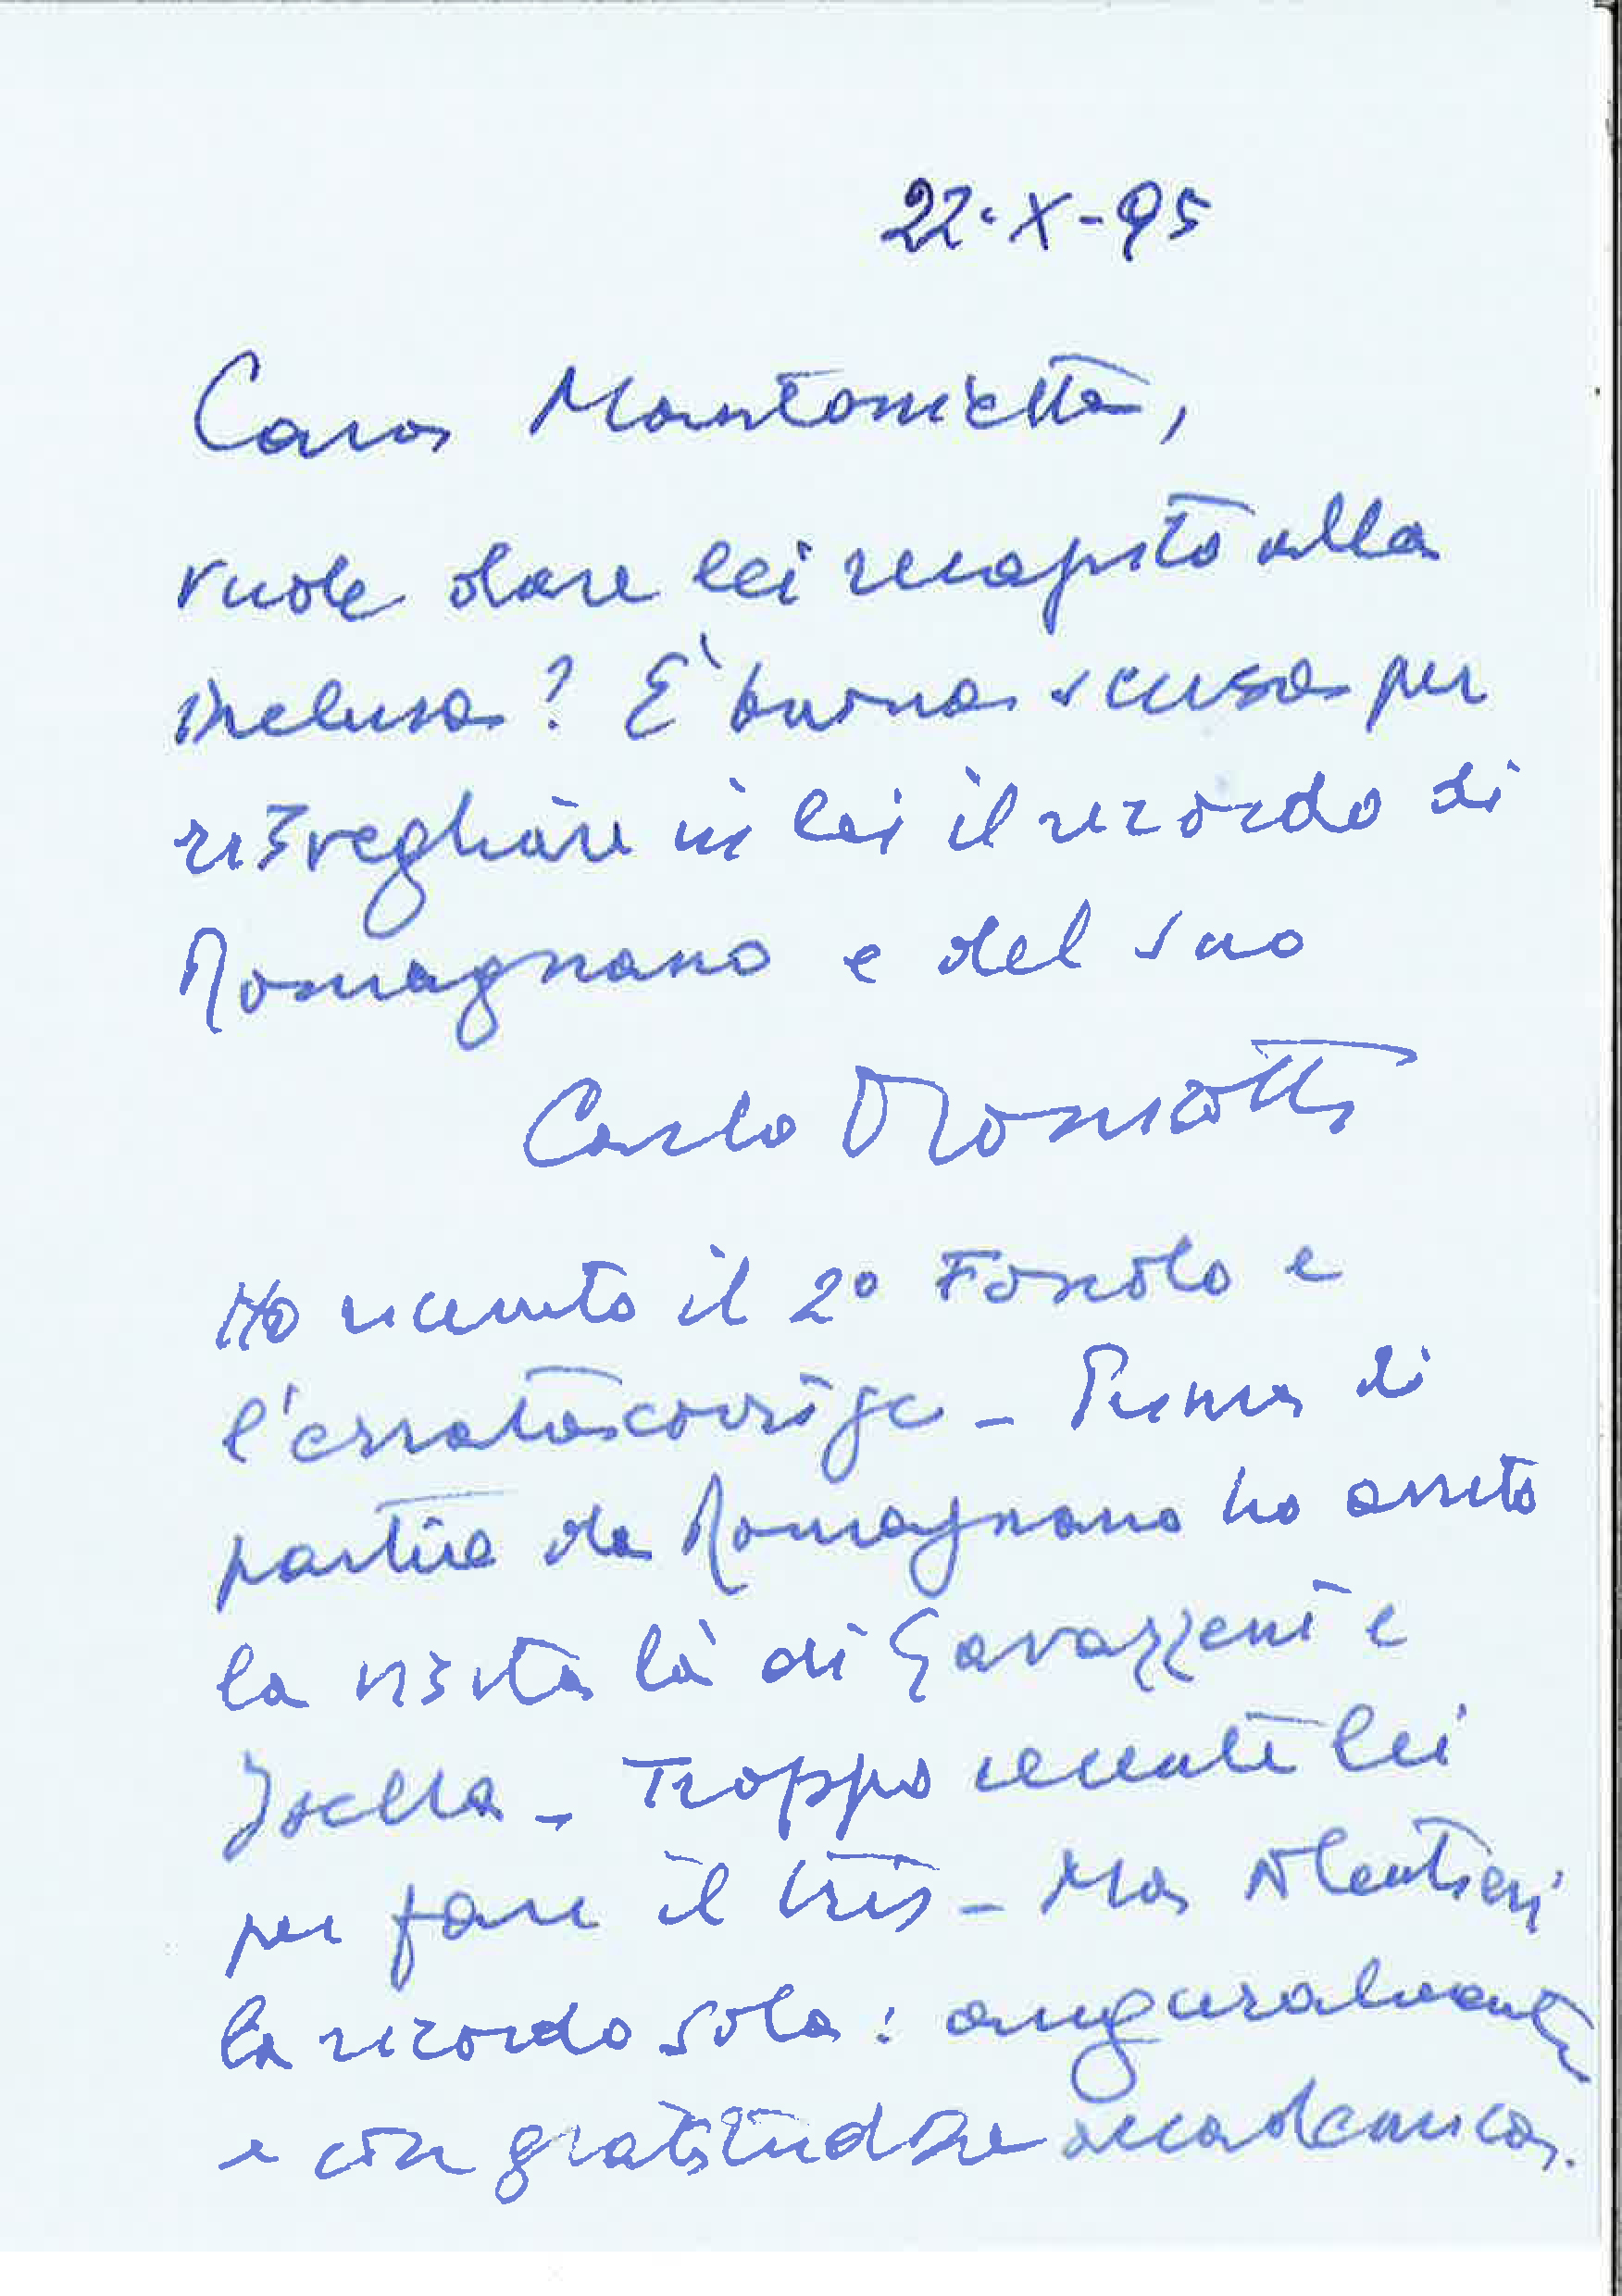 22·X-95
Cara Mantonietta,
vuole dare lei recapito alla
inclusa? È buona scusa per
risvegliare in lei il ricordo di
Romagnano e del suo
Carlo Dionisotti
Ho ricevuto il 2° Foscolo e
l'errata corrige - Prima di
partire da Romagnano ho avuto
la visita là di Gavazzeni e
Isella - Troppo recente lei
per fare il tris - Ma volentieri
la ricordo sola: auguralmente
e con gratitudine accademica.